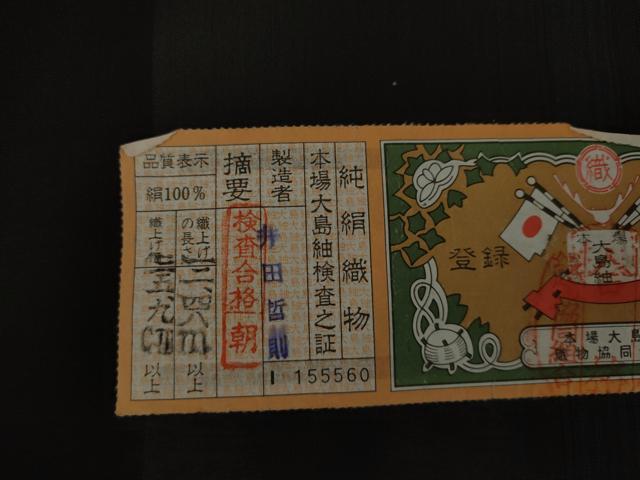 純絹織物
本場大島紬検査之証
製造者
井田哲則
155560
摘要
検査合格
朝
品質表示
絹100%
織上げの長さ
一二、四m以上
織上げ
以上
登録
織
本場
大島紬
本場大島
織物協同